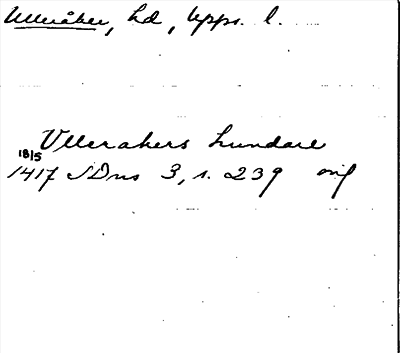 Ulleråker, hd, Upps. l.
Vllerakers hundare
18/5
1417 SDns 3, s. 239 orig